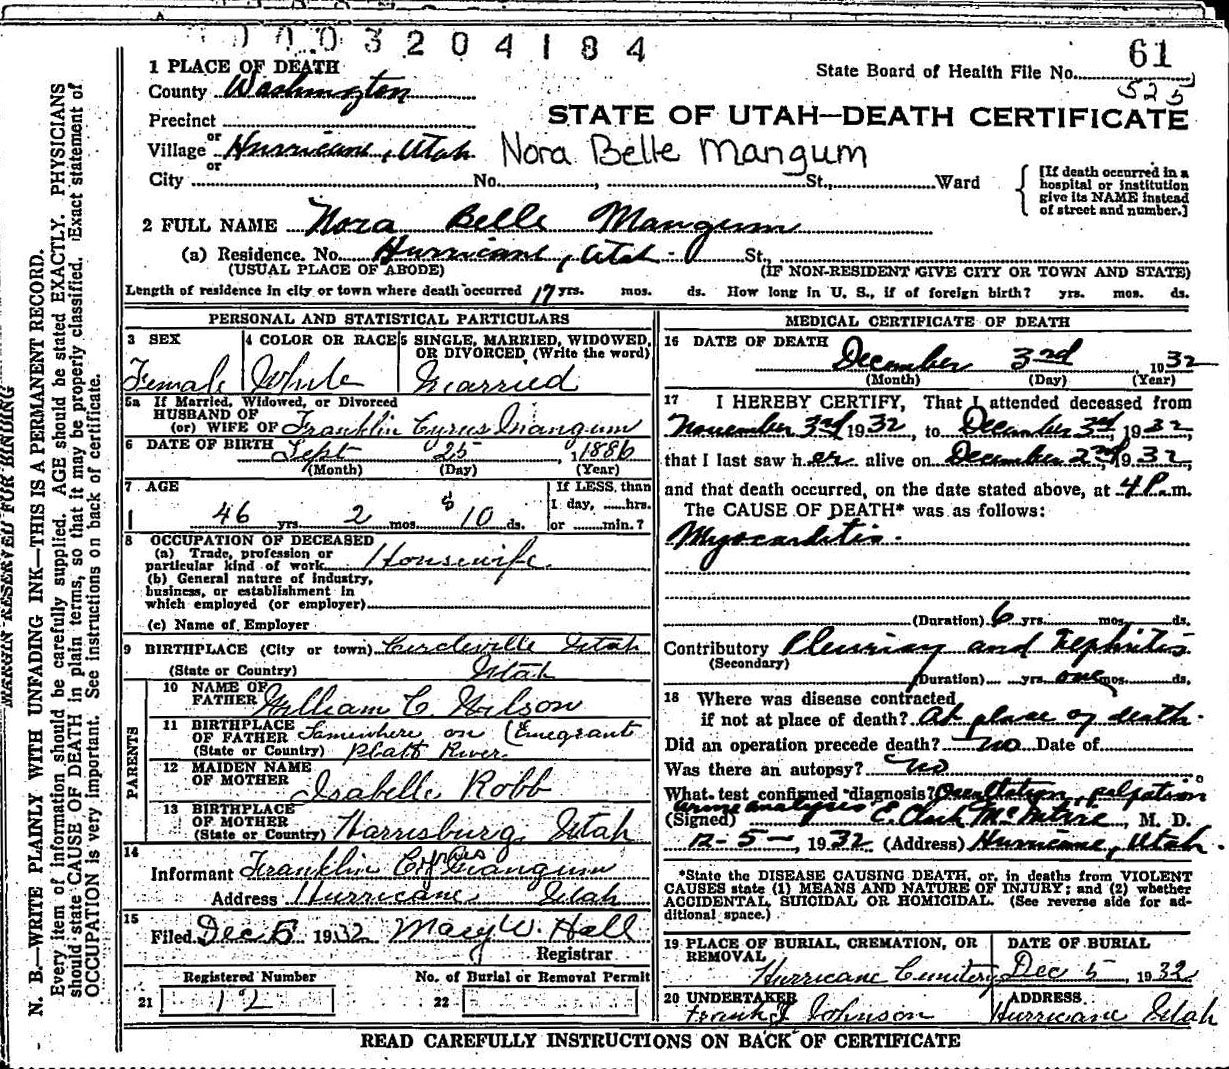 0003204184
61
State Board of Health File No. 525
1 PLACE OF DEATH
County Washington
STATE OF UTAH—DEATH CERTIFICATE
Precinct
or
Village Hurricane, Utah Nora Belle Mangum
or
City No. , St., Ward
[If death occurred in a hospital or institution give its NAME instead of street and number.]
2 FULL NAME Nora Belle Mangum
(a) Residence. No. Hurricane, Utah St.,
(USUAL PLACE OF ABODE) (IF NON-RESIDENT GIVE CITY OR TOWN AND STATE)
Length of residence in city or town where death occurred 17 yrs. mos. ds. How long in U. S., if of foreign birth? yrs. mos. ds.
PERSONAL AND STATISTICAL PARTICULARS
3 SEX
Female
4 COLOR OR RACE
White
5 SINGLE, MARRIED, WIDOWED,
OR DIVORCED (Write the word)
Married
5a If Married, Widowed, or Divorced
HUSBAND OF
(or) WIFE OF Franklin Cyrus Mangum
6 DATE OF BIRTH Sept 25, 1886
(Month) (Day) (Year)
7 AGE
46 yrs. 2 mos. 8 10 ds.
If LESS, than
1 day, hrs.
or min.?
8 OCCUPATION OF DECEASED
(a) Trade, profession or
particular kind of work Housewife
(b) General nature of industry,
business, or establishment in
which employed (or employer)
(c) Name of Employer
9 BIRTHPLACE (City or town) Circleville Utah
(State or Country) Utah
PARENTS
10 NAME OF
FATHER William C. Wilson
11 BIRTHPLACE
OF FATHER Somewhere on (Emegrant
(State or Country) Platt River
12 MAIDEN NAME
OF MOTHER Isabelle Robb
13 BIRTHPLACE
OF MOTHER
(State or Country) Harrisburg, Utah
14
Informant Franklin Cyrus Mangum
Address Hurricane Utah
15
Filed Dec 5 1932 Mary W. Hall
Registrar
Registered Number
21 12
No. of Burial or Removal Permit
22
MEDICAL CERTIFICATE OF DEATH
16 DATE OF DEATH
December 3rd 1932
(Month) (Day) (Year)
17 I HEREBY CERTIFY, That I attended deceased from
November 3rd 1932, to December 3rd, 1932,
that I last saw her alive on December 2nd, 1932,
and that death occurred, on the date stated above, at 4 P.m.
The CAUSE OF DEATH* was as follows:
Myocarditis.
(Duration) 6 yrs. mos. ds.
Contributory Pleurisy and Nephritis
(Secondary)
(Duration) yrs. one mos. ds.
18 Where was disease contracted
if not at place of death? At place of death.
Did an operation precede death? no Date of
Was there an autopsy? no
What test confirmed diagnosis? palpation
urine analyses
(Signed) E. Clark McIntire, M. D.
12-5-, 1932 (Address) Hurricane, Utah.
*State the DISEASE CAUSING DEATH, or, in deaths from VIOLENT
CAUSES state (1) MEANS AND NATURE OF INJURY; and (2) whether
ACCIDENTAL, SUICIDAL OR HOMICIDAL. (See reverse side for ad-
ditional space.)
19 PLACE OF BURIAL, CREMATION, OR
REMOVAL
Hurricane Cemitery
DATE OF BURIAL
Dec 5, 1932
20 UNDERTAKER
Frank J Johnson
ADDRESS
Hurricane Utah
READ CAREFULLY INSTRUCTIONS ON BACK OF CERTIFICATE
MARGIN RESERVED FOR BINDING
N. B.—WRITE PLAINLY WITH UNFADING INK—THIS IS A PERMANENT RECORD.
Every item of information should be carefully supplied. AGE should be stated EXACTLY. PHYSICIANS
should state CAUSE OF DEATH in plain terms, so that it may be properly classified. Exact statement of
OCCUPATION is very important. See instructions on back of certificate.